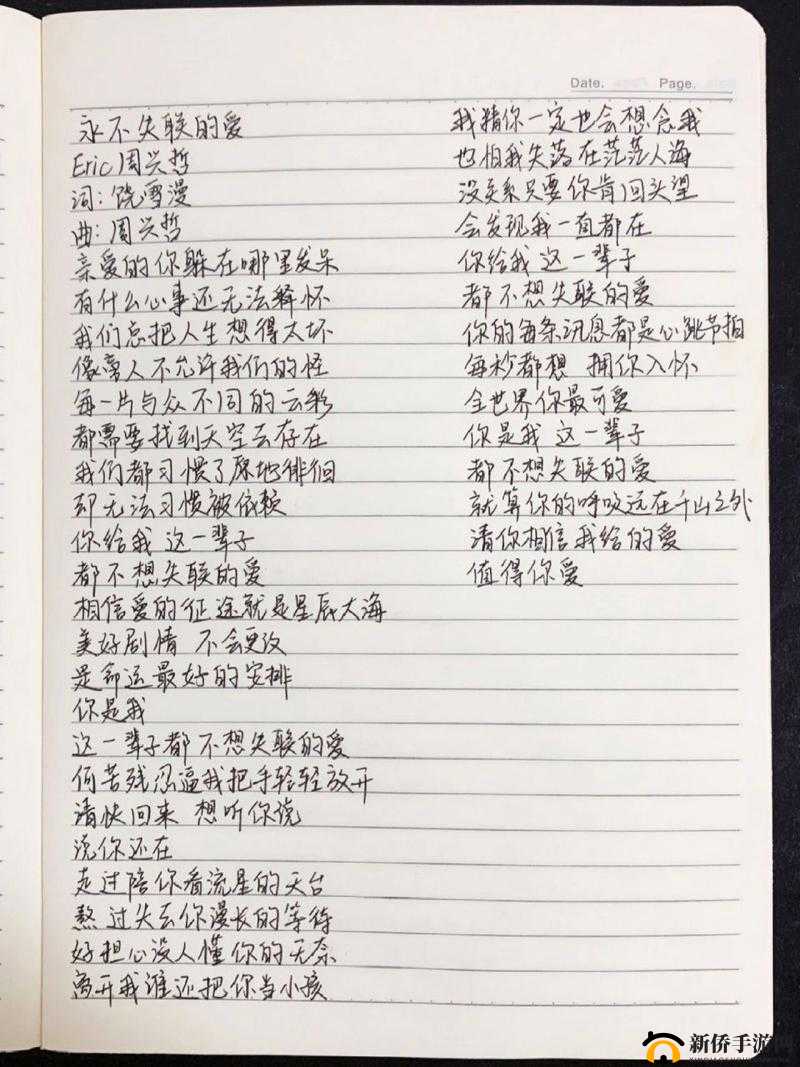 Date.
Page.
永不失联的爱
Eric周兴哲
词：饶雪漫
曲：周兴哲
亲爱的你躲在哪里发呆
有什么心事还无法释怀
我们总把人生想得太坏
像旁人不允许我们的怪
每一片与众不同的云彩
都需要找到天空去存在
我们都习惯了原地徘徊
却无法习惯被依赖
你给我 这一辈子
都不想失联的爱
相信爱的征途就是星辰大海
美好剧情 不会更改
是命运最好的安排
你是我
这一辈子都不想失联的爱
何苦残忍逼我把手轻轻放开
请快回来 想听你说
说你还在
走过陪你看流星的天台
熬过失去你漫长的等待
好担心没人懂你的无奈
离开我谁还把你当小孩
我猜你一定也会想念我
也怕我失落在茫茫人海
没关系只要你肯回头望
会发现我一直都在
你给我 这一辈子
都不想失联的爱
你的每条讯息都是心跳节拍
每秒都想 拥你入怀
全世界你最可爱
你是我 这一辈子
都不想失联的爱
就算你的呼吸远在千山之外
请你相信我给的爱
值得你爱
新侨手游